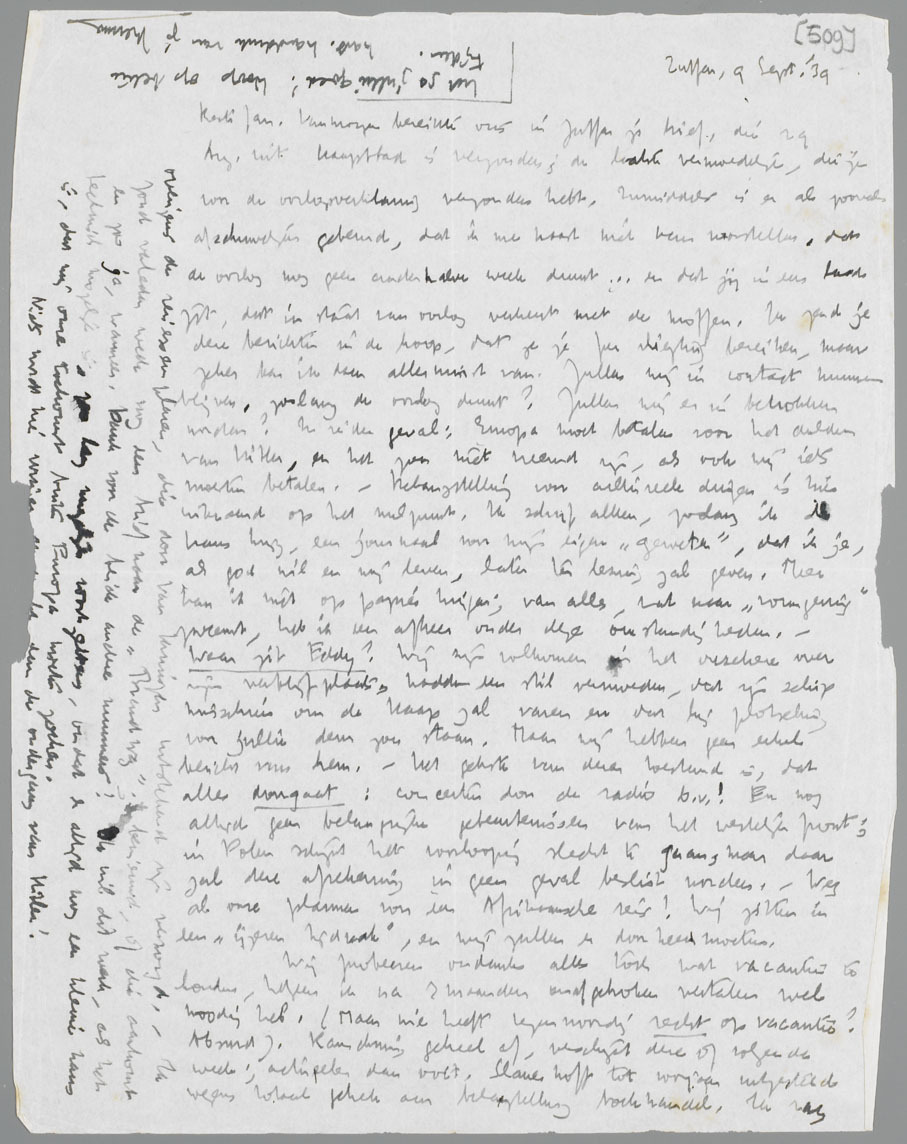 [509]
Zutfen, 9 Sept. '39
Beste Jan. Vanmorgen bereikte ons in Zutfen je brief, die 29
Aug. uit Kaapstad is verzonden; de laatste vermoedelijk, die je
voor de oorlogsverklaring verzonden hebt. Inmiddels is er al zooveel
afschuwelijks gebeurd, dat ik me haast niet kan voorstellen, dat
de oorlog nog geen anderhalve week duurt ... en dat jij in een land
zit, dat in staat van oorlog verkeert met de moffen. Ik zend je
deze berichten in de hoop, dat ze je per vliegtuig bereiken, maar
zeker ben ik daar allerminst van. Zullen wij in contact kunnen
blijven, zoolang de oorlog duurt? Zullen wij er in betrokken
worden? In ieder geval: Europa moet betalen voor het dulden
van Hitler, en het zou niet vreemd zijn, als ook wij iets
moeten betalen. – Belangstelling voor cultureele dingen is hier
uiteraard op het nulpunt. Ik schrijf alleen, zoolang ik de
kans krijg, een journaal voor mijn eigen „geweten", dat ik je,
als god wil en wij leven, later ter lezing zal geven. Meer
kan ik niet op papier krijgen; van alles, wat naar „vormgeving"
zweemt, heb ik een afkeer onder deze omstandigheden. –
Waar zit Eddy? Wij zijn volkomen in het onzekere over
zijn verblijfplaats, hadden een stil vermoeden, dat zijn schip
misschien om de Kaap zal varen en dat hij plotseling
voor jullie deur zou staan. Maar wij hebben geen enkel
bericht van hem. – Het gekste van dezen toestand is, dat
alles doorgaat: concerten door de radio b.v.! En nog
altijd geen belangrijke gebeurtenissen van het westelijk front;
in Polen schijnt het voorloopig slecht te gaan, maar daar
zal deze afrekening in geen geval beslist worden. – Weg
al onze plannen voor een Afrikaansche reis! Wij zitten in
een „ijzeren hijdraak", en wij zullen er doorheen moeten.
Wij probeeren ondanks alles toch wat vacantie te
houden, hetgeen ik na 2 maanden onafgebroken vertalen wel
noodig heb. (Maar wie heeft tegenwoordig recht op vacantie?
Absurd). Rauschning geheel af, verschijnt deze of volgende
week; actueler dan ooit. Slauerhoff tot voorjaar uitgesteld
wegens totaal gebrek aan belangstelling boekhandel. Ik zag
overigens de reizen en plannen, die door Van Kampen uitstekend zijn verzorgd. – Ik
zond verleden week nog een brief naar de „Brandweg". benieuwd, of die aankomt
en zoo ja, wanneer. Dank voor de beide andere nummers! Ik wil dit werk, als het
technisch mogelijk is, zoo lang mogelijk voortzetten, omdat er altijd nog een kleine kans
is, dat wij onze toekomst buiten Europa moeten zoeken.
Niets wordt hier vuriger gewenscht dan de ondergang van Hitler!
Het ga jullie goed! Hoop op betere
tijden.
hart. handdruk van je Menno